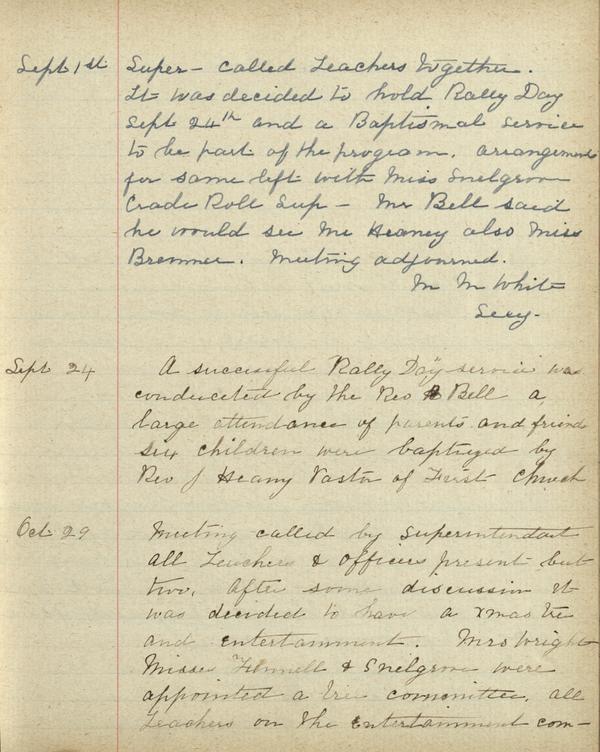 Sept 1st Super- called Teachers together.
It was decided to hold Rally Day
Sept 24th and a Baptismal service
to be part of the program. arrangements
for same left with Miss Snelgrove
Cradle Roll Sup- Mr Bell said
he would see Mr Heaney also Miss
Bremner. Meeting adjourned.
M M White
Secy-
Sept 24 A successful Rally Day service was
conducted by the Rev Bell a
large attendance of parents and friends
six children were baptized by
Rev J Heany Pastor of First Church
Oct 29 Meeting called by Superintendant
all Teachers & officers present but
two. After some discussion it
was decided to have a xmas tre
and entertainment. Mrs Wright
Misses & Snelgrove were
appointed a tree committee. all
Teachers on the entertainment com-